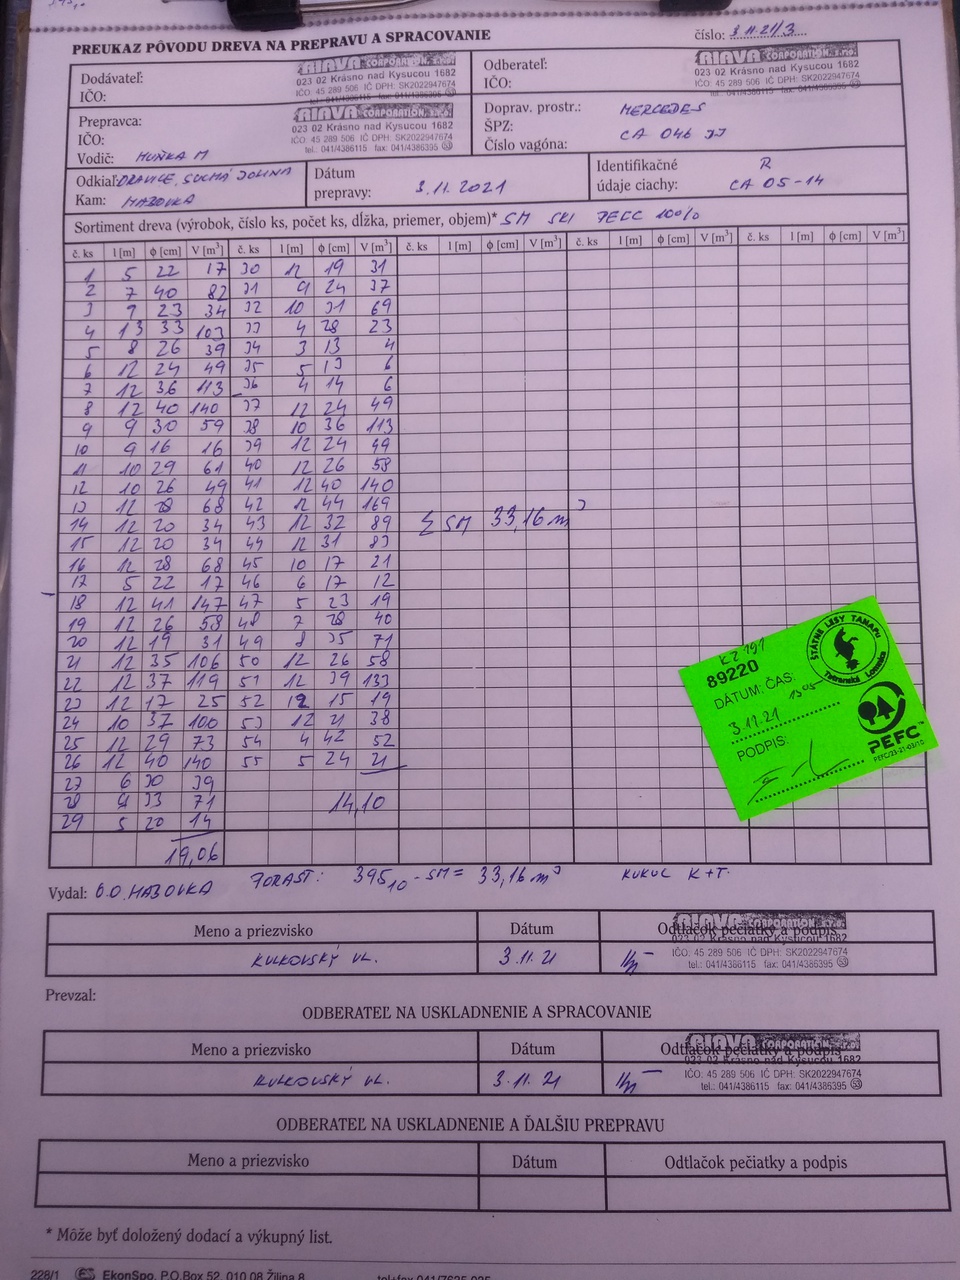 PREUKAZ PÔVODU DREVA NA PREPRAVU A SPRACOVANIE
číslo: 3.11.21/3
Dodávateľ:
IČO:
RIAVA CORPORATION, s.r.o.
023 02 Krásno nad Kysucou 1682
IČO: 45 289 506 IČ DPH: SK2022947674
tel.: 041/4386115 fax: 041/4386395 53
Odberateľ:
IČO:
RIAVA CORPORATION, s.r.o.
023 02 Krásno nad Kysucou 1682
IČO: 45 289 506 IČ DPH: SK2022947674
Prepravca:
IČO:
Vodič: HUŇKA M
RIAVA CORPORATION, s.r.o.
023 02 Krásno nad Kysucou 1682
IČO: 45 289 506 IČ DPH: SK2022947674
tel.: 041/4386115 fax: 041/4386395 53
Doprav. prostr.: MERCEDES
ŠPZ: CA 046 JJ
Číslo vagóna:
Odkiaľ: ORAVICE, SUCHÁ DOLINA
Kam: HABOVKA
Dátum
prepravy: 3.11.2021
Identifikačné R
údaje ciachy: CA 05-14
Sortiment dreva (výrobok, číslo ks, počet ks, dĺžka, priemer, objem)* SM SKI PEFC 100%
č. ks l [m] ϕ [cm] V [m³] č. ks l [m] ϕ [cm] V [m³] č. ks l [m] ϕ [cm] V [m³] č. ks l [m] ϕ [cm] V [m³] č. ks l [m] ϕ [cm] V [m³]
1 5 22 17 30 12 19 31
2 7 40 82 31 9 24 37
3 9 23 34 32 10 31 69
4 13 33 103 33 4 28 23
5 8 26 39 34 3 13 4
6 12 24 49 35 5 13 6
7 12 36 113 36 4 14 6
8 12 40 140 37 12 24 49
9 9 30 59 38 10 36 113
10 9 16 16 39 12 24 49
11 10 29 61 40 12 26 58
12 10 26 49 41 12 40 140
13 12 28 68 42 12 44 169
14 12 20 34 43 12 32 89
Σ SM 33,16 m³
15 12 20 34 44 12 31 83
16 12 28 68 45 10 17 21
17 5 22 17 46 6 17 12
18 12 41 147 47 5 23 19
19 12 26 58 48 7 28 40
20 12 19 31 49 8 35 71
21 12 35 106 50 12 26 58
22 12 37 119 51 12 39 133
23 12 17 25 52 12 15 19
24 10 37 100 53 12 21 38
25 12 29 73 54 4 42 52
26 12 40 140 55 5 24 21
27 6 30 39
28 9 33 71 14,10
29 5 20 14
19,06
KZ 191
89220
DÁTUM: ČAS:
3.11.21 1305
PODPIS:
ŠTÁTNE LESY TANAPU
Tatranská Lomnica
PEFC™
PEFC/23-21-03/10
Vydal: O.O. HABOVKA PORAST: 395 10 - SM = 33,16 m³ KUKUL K+T.
Meno a priezvisko Dátum Odtlačok pečiatky a podpis
KULKOVSKÝ VL. 3.11.21
RIAVA CORPORATION, s.r.o.
023 02 Krásno nad Kysucou 1682
IČO: 45 289 506 IČ DPH: SK2022947674
tel.: 041/4386115 fax: 041/4386395 53
Prevzal:
ODBERATEĽ NA USKLADNENIE A SPRACOVANIE
Meno a priezvisko Dátum Odtlačok pečiatky a podpis
KULKOVSKÝ VL. 3.11.21
RIAVA CORPORATION, s.r.o.
023 02 Krásno nad Kysucou 1682
IČO: 45 289 506 IČ DPH: SK2022947674
tel.: 041/4386115 fax: 041/4386395 53
ODBERATEĽ NA USKLADNENIE A ĎALŠIU PREPRAVU
Meno a priezvisko Dátum Odtlačok pečiatky a podpis
* Môže byť doložený dodací a výkupný list.
228/1 EkonSpo, P.O.Box 52, 010 08 Žilina 8